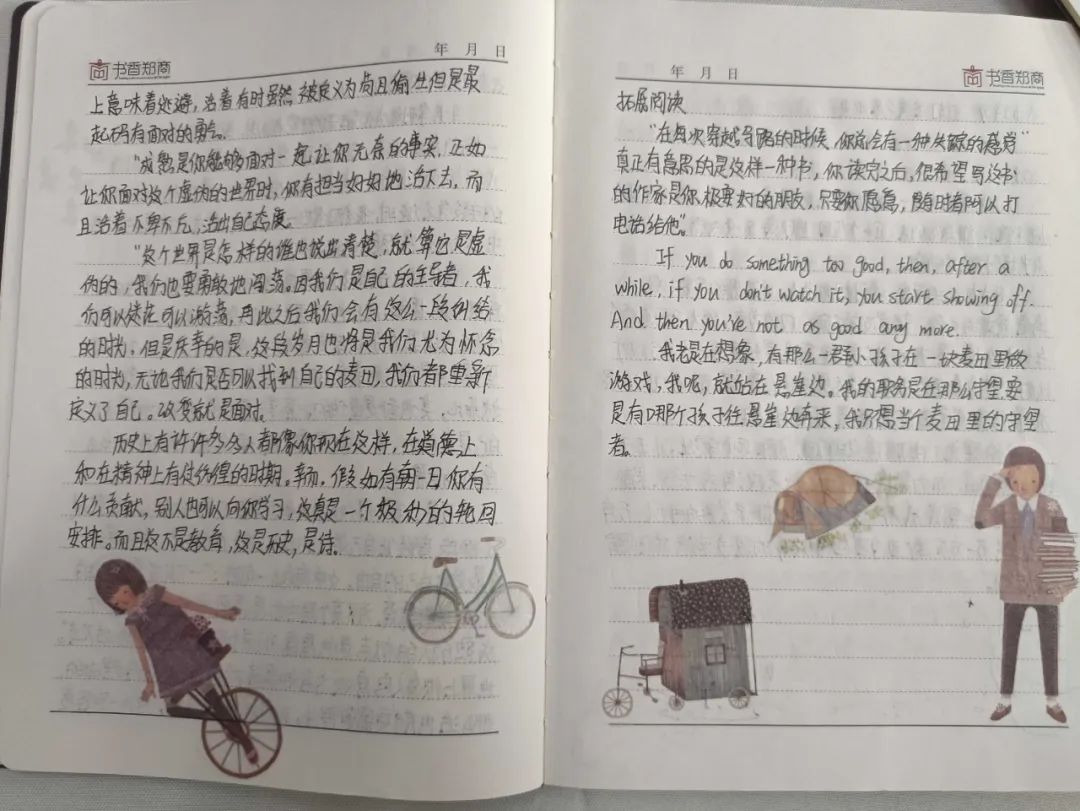 书香郑商
年 月 日
上意味着逃避,活着有时虽然被定义为苟且偷生但是最
起码有面对的勇气。
"成熟是你能够面对一起让你无奈的事实,正如
让你面对这个虚伪的世界时,你有担当好好地活下去,而
且活着不卑不亢,活出自己态度。
"这个世界是怎样的谁也说出清楚,就算它是虚
伪的,我们也要勇敢地闯荡。因我们是自己的主导者,我
们可以徒茫可以游荡,再此之后我们会有这么一段纠结
的时光。但是庆幸的是,这段岁月也将是我们尤为怀念
的时光,无论我们是否可以找到自己的麦田,我们都重新
定义了自己。改变就是面对。
历史上有许许多多人都像你现在这样,在道德上
和在精神上有彷徨的时期。幸而,假如有朝一日你有
什么贡献,别人也可以向你学习,这真是一个极妙的轮回
安排。而且这不是教育,这是历史,是诗。
年 月 日
书香郑商
拓展阅读
"在每次穿越马路的时候,你总会有一种失踪的感觉"
真正有意思的是这样一种书,你读完之后,很希望写这书
的作家是你极要好的朋友,只要你愿意,随时都可以打
电话给他"。
If you do something too good, then, after a
while, if you don't watch it, you start showing off.
And then you're not as good any more.
我老是在想象,有那么一群小孩子在一块麦田里做
游戏,我呢,就站在悬崖边。我的职务是在那么守望,要
是有哪个孩子往悬崖边奔来,我只想当个麦田里的守望
者。